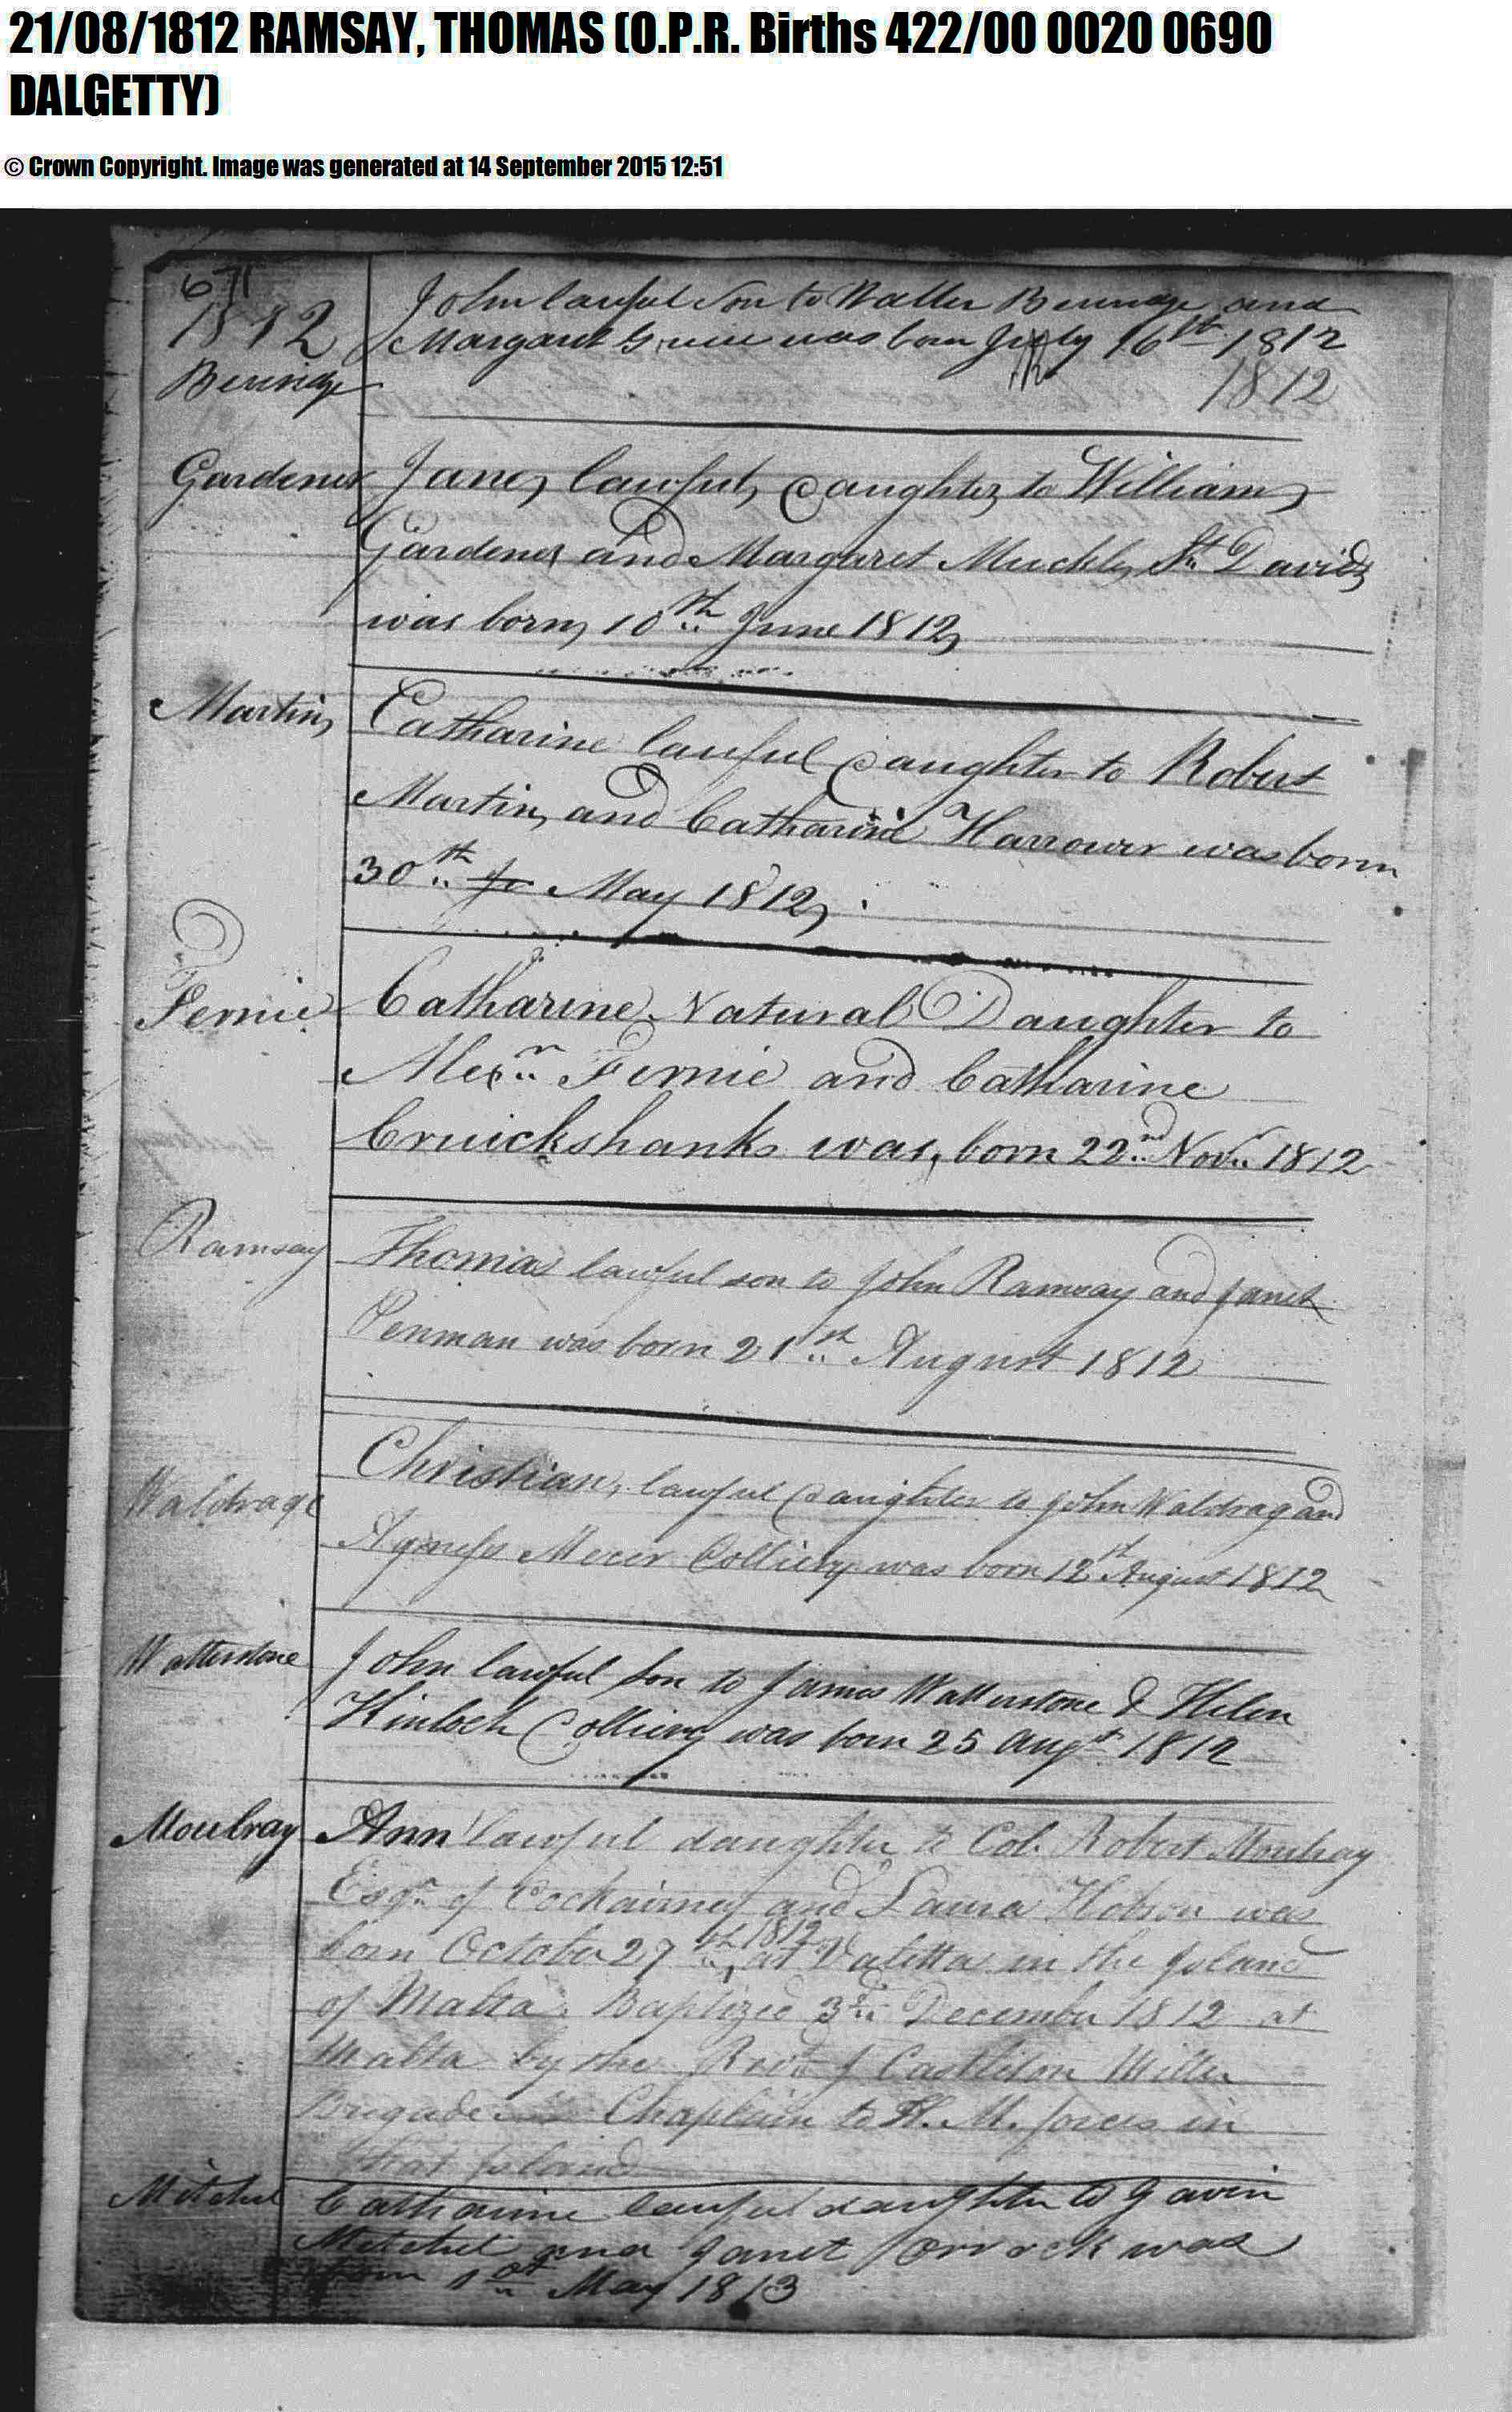 21/08/1812 RAMSAY, THOMAS (O.P.R. Births 422/00 0020 0690
DALGETTY)
© Crown Copyright. Image was generated at 14 September 2015 12:51
671
1812
John lawful Son to Walter Beveridge and
Margaret was born July 16th 1812
1812
Beveridge
Gardener
Jane, lawful, Daughter, to William,
Gardener and Margaret Muckle, St. Davids,
was born, 10th June 1812,
Martin,
Catharine lawful Daughter to Robert
Martin, and Catharine Harrower was born
30th May 1812,
Fernie
Catharine Natural Daughter to
Alexr. Fernie and Catharine
Cruickshanks was, born 22nd Novr. 1812
Ramsay
Thomas lawful son to John Ramsay and Janet
Penman was born 21st August 1812
Waldrage
Christian, lawful Daughter to John Waldrag and
Agness Mercer Colliery was born 12th August 1812
Watterstone
John lawful Son to James Watterstone & Helen
Kinloch Colliery was born 25 Augst 1812
Moubray
Ann lawful daughter to Col. Robert Moubray
Esqr. of Cockairney and Laura Hobson was
born October 27th 1812, at Valetta in the Island
of Malta. Baptized 3d. December 1812 at
Malta by the Revd. J Castleton Miller
Brigade Chaplain to H. M. forces in
that Island
Mitchel
Catharine lawful daughter to Gavin
Mitchel and Janet Orrock was
born 1st May 1813